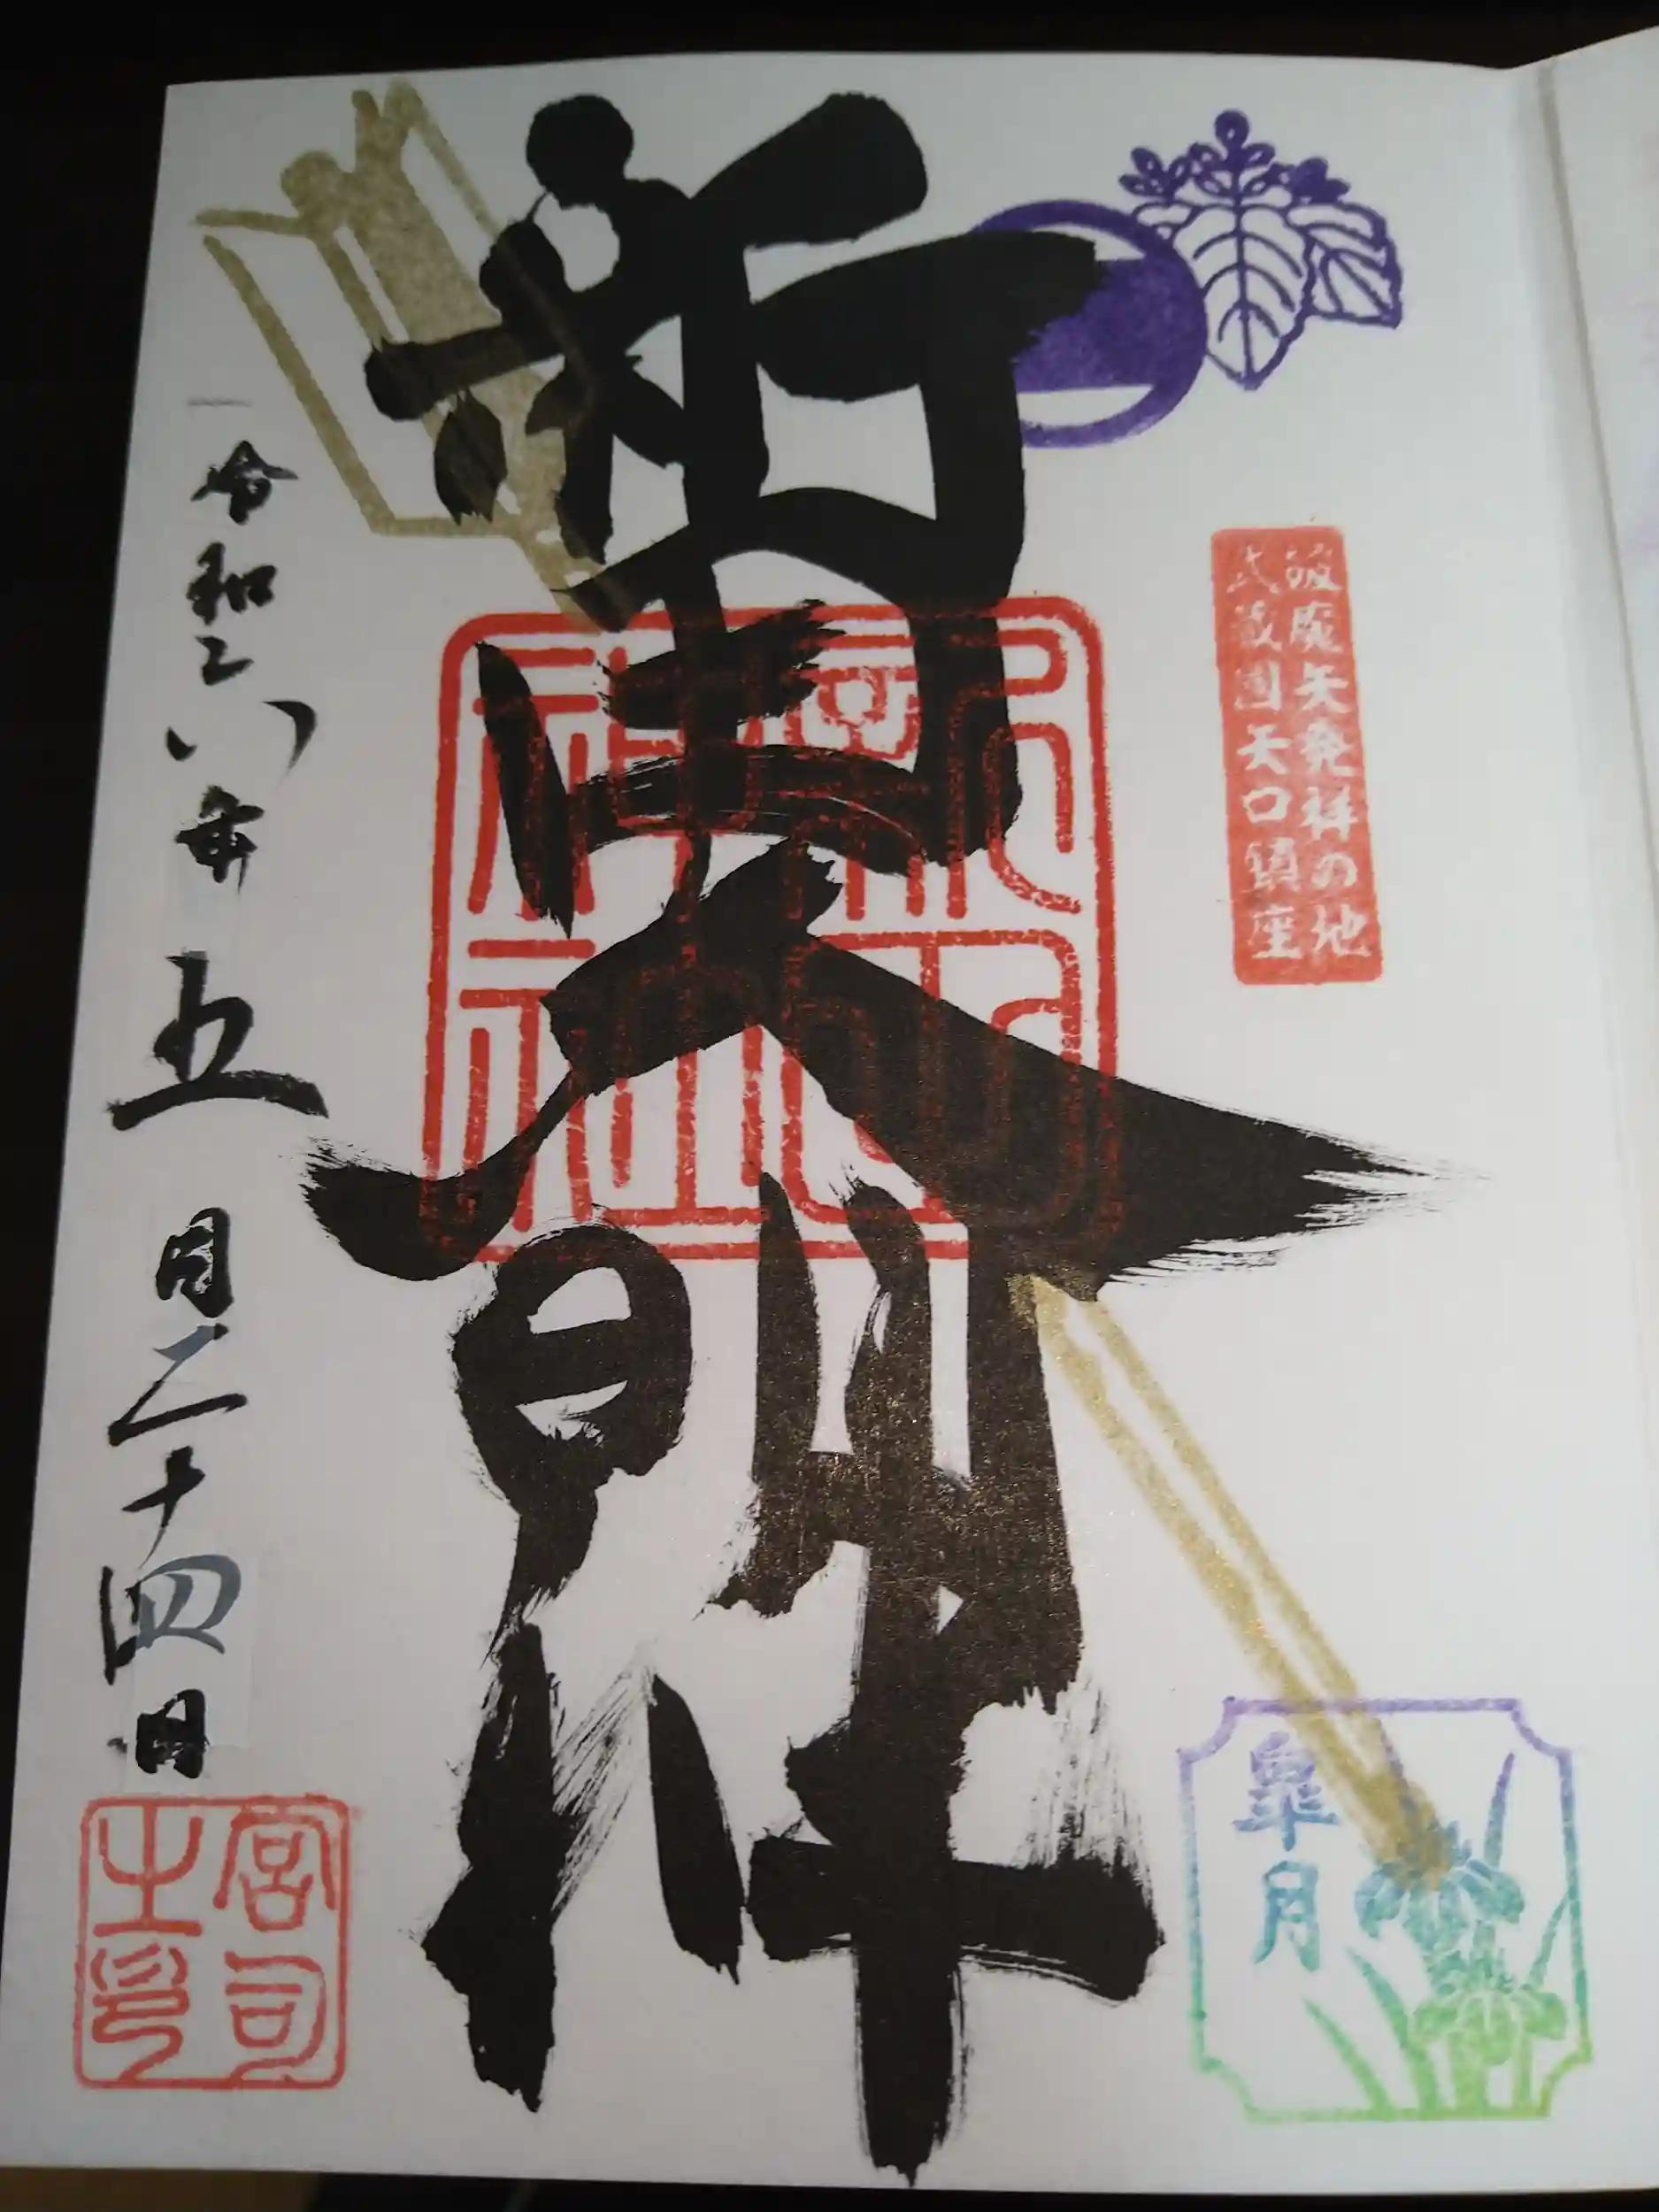 破魔矢発祥の地
武蔵国矢口鎮座
新田大明神
新田神社
令和六年五月二十四日
宮司
之印
皐月